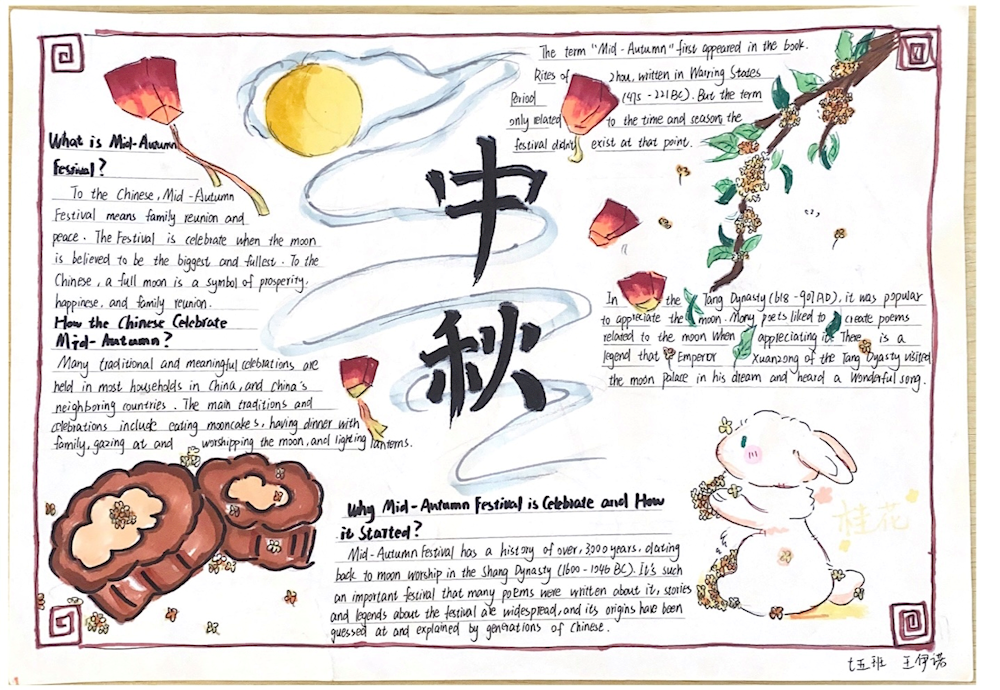 What is Mid-Autumn
Festival?
To the Chinese, Mid-Autumn
Festival means family reunion and
peace. The Festival is celebrate when the moon
is believed to be the biggest and fullest. To the
Chinese, a full moon is a symbol of prosperity,
happinese, and family reunion.
How the Chinese Celebrate
Mid-Autumn?
Many traditional and meaningful celebrations are
held in most households in China, and china's
neighboring countries. The main traditions and
celebrations include eating mooncakes, having dinner with
family, gazing at and worshipping the moon, and lighting lanterns.
中
秋
The term "Mid-Autumn" first appeared in the book.
Rites of Zhou, written in Warring States
Period (475-221 BC). But the term
only related to the time and season, the
festival didn't exist at that point.
In the Tang Dynasty (618-907 AD), it was popular
to appreciate the moon. Many poets liked to create poems
related to the moon when appreciating it. There is a
legend that Emperor Xuanzong of the Tang Dyasty visited
the moon palace in his dream and heard a wonderful song.
Why Mid-Autumn Festival is Celebrate and How
it Started?
Mid-Autumn Festival has a history of over, 3,000 years, dating
back to moon worship in the Shang Dynasty (1600-1046 BC). It's such
an important festival that many poems were written about it, stories
and legends about the festival are widespread, and its origins have been
guessed at and explained by generations of Chinese.
桂花
七五班 王伊诺